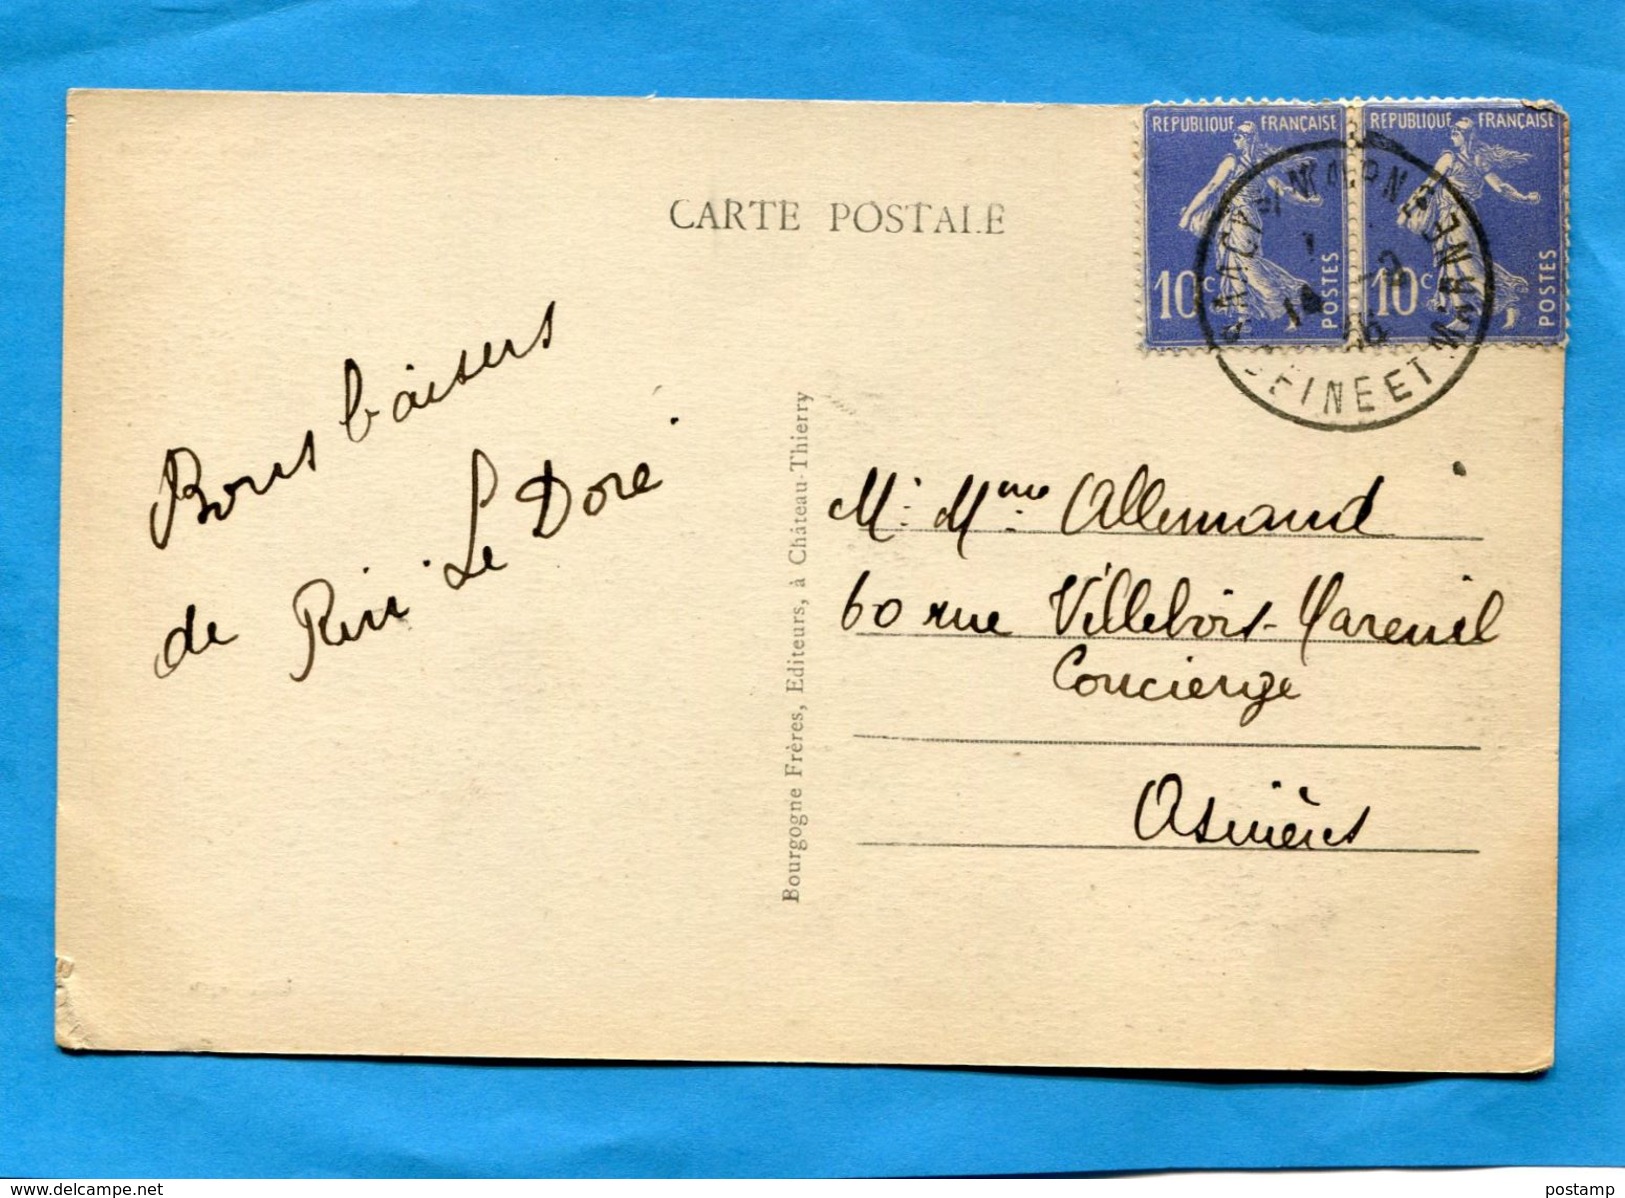 REPUBLIQUE FRANÇAISE
10c
POSTES
REPUBLIQUE FRANÇAISE
10c
POSTES
NANCY-EN-MARNE
SEINE ET MARNE
14 -3
CARTE POSTALE
Bons baisers
de Rini Le Doré
Bourgogne Frères, Editeurs, à Château-Thierry
Mr Mme Allemand
60 rue Villebois-Mareuil
Concierge
Asnières
www.delcampe.net
postamp